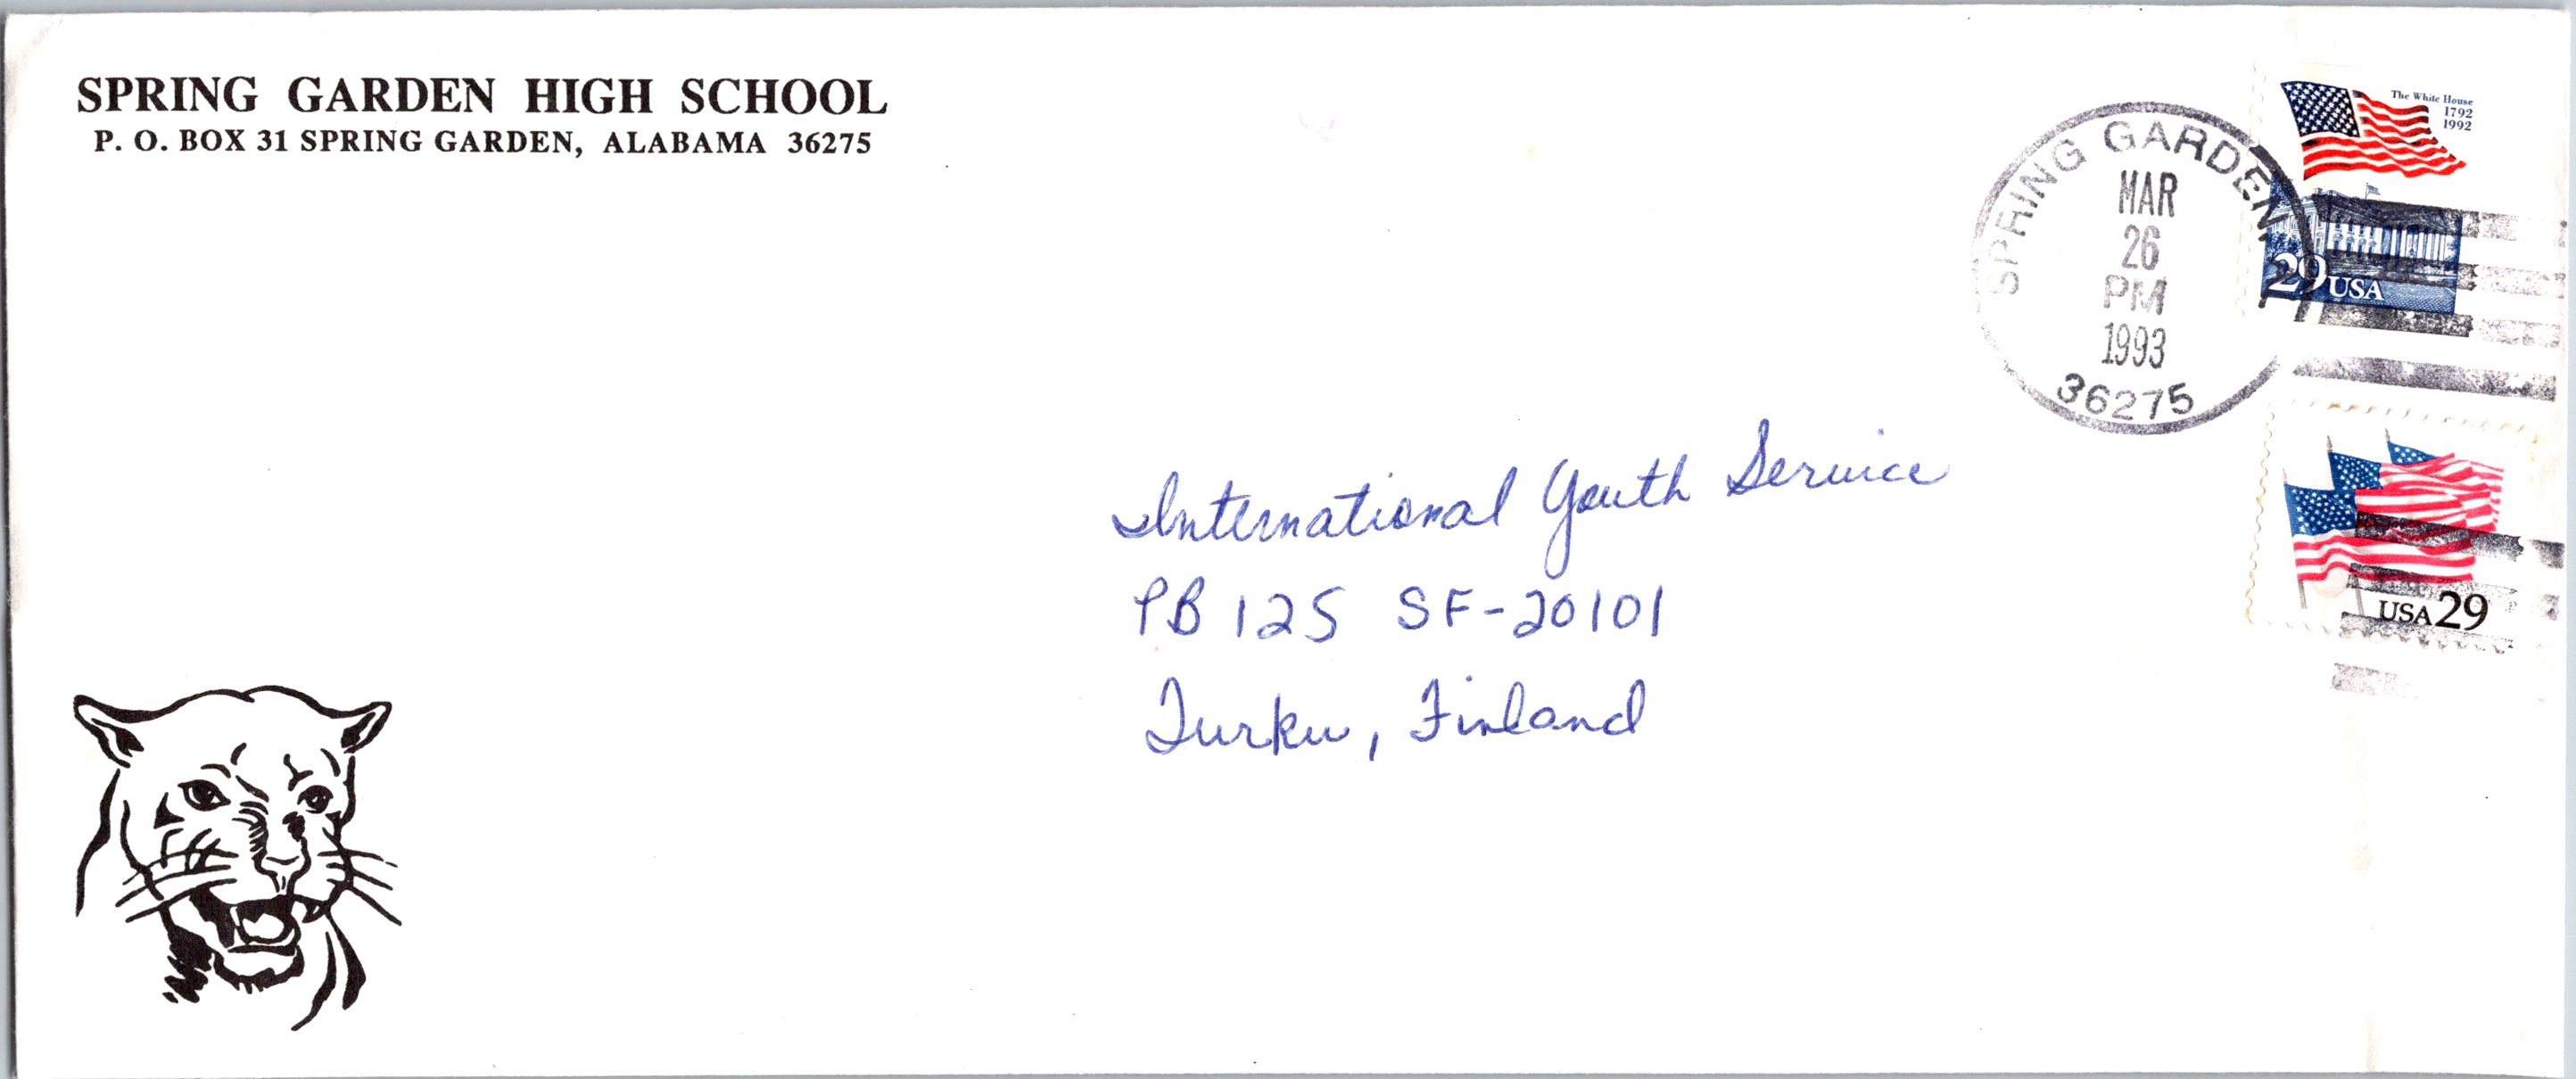 SPRING GARDEN HIGH SCHOOL
P. O. BOX 31 SPRING GARDEN, ALABAMA 36275
SPRING GARDEN
MAR
26
PM
1993
36275
The White House
1792
1992
29 USA
USA 29
International Youth Service
PB 125 SF-20101
Turku, Finland